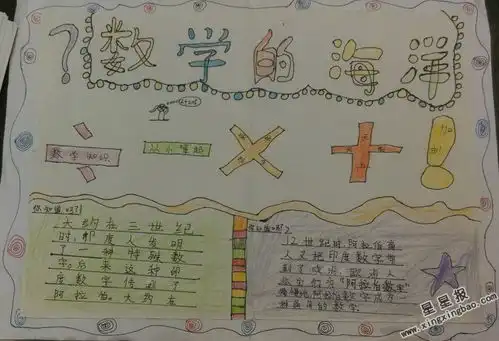 ?数学的海洋
数学知识
从小重起
!
你知道吗?
大约在三世纪
时,印度人发明
了一种特殊数
字。后来这种印
度数字传到了
阿拉伯。大约在
12世纪时,阿拉伯商
人又把印度数字带
到了欧洲,欧洲人
"阿拉伯数字"
阿拉伯数字成为
世界通用的数字。
星星报
www.xingxingbao.com